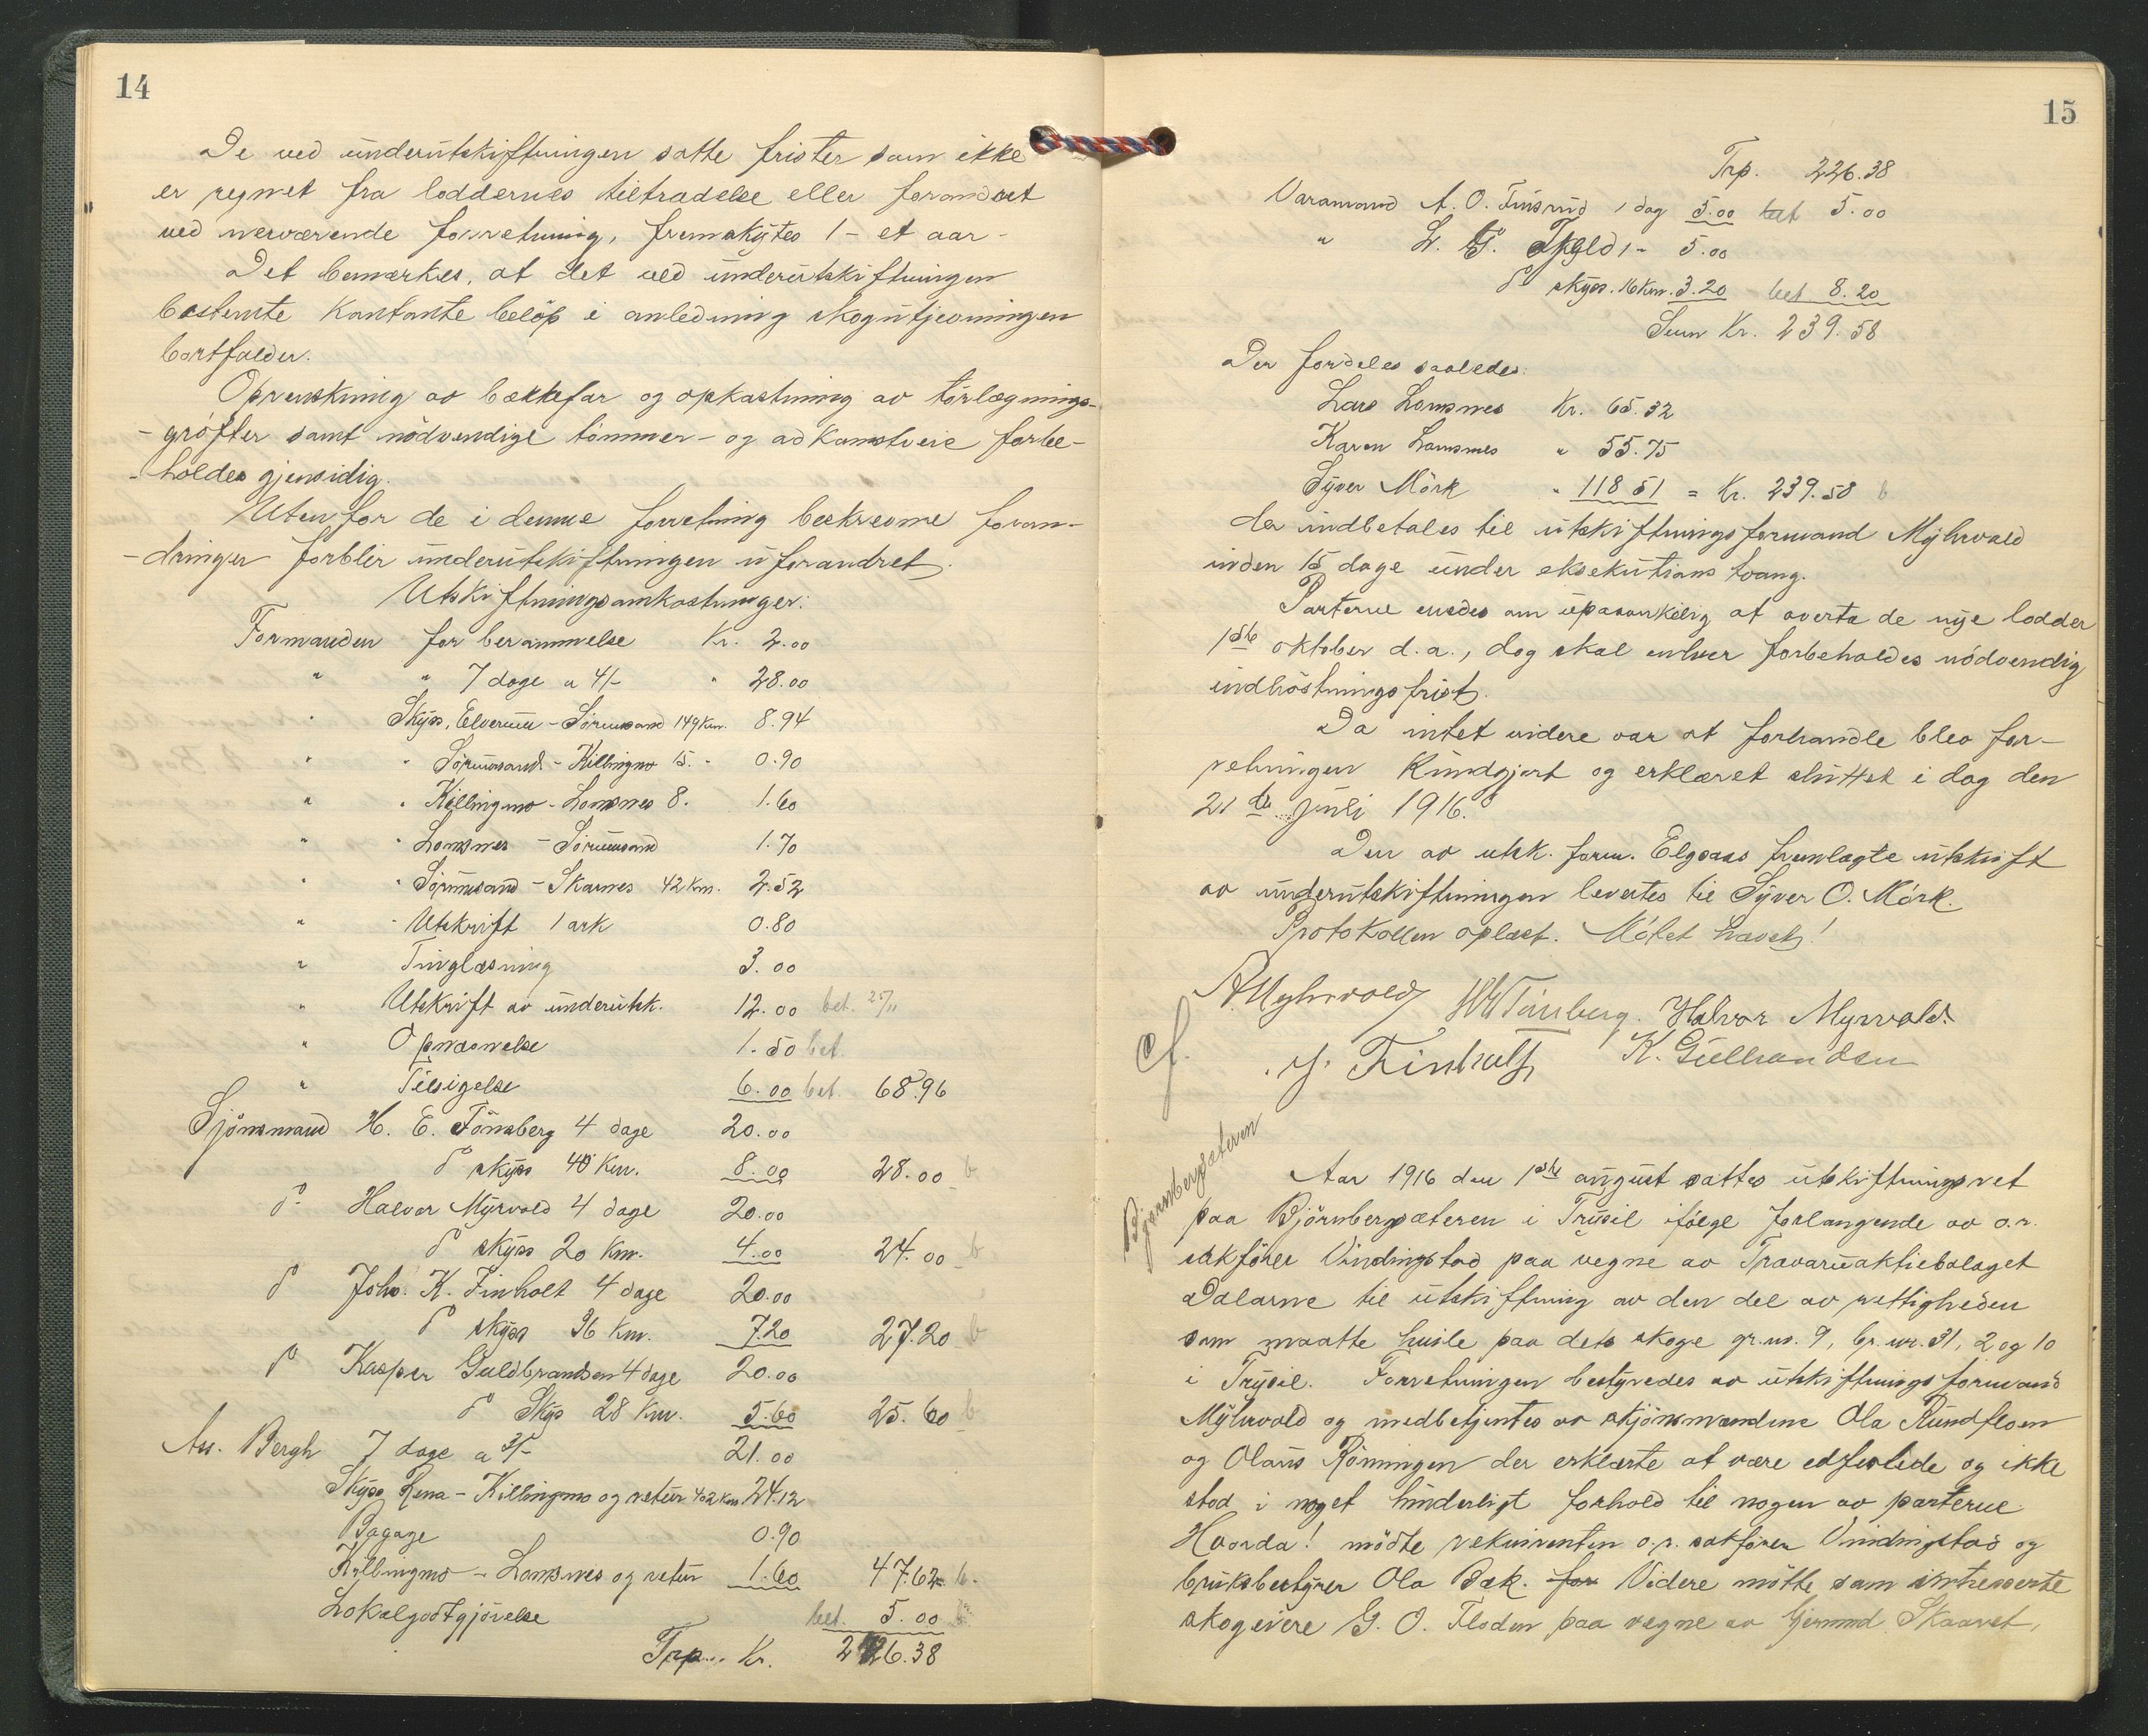 14
De ved underutskiftningen satte frister som ikke
er regnet fra loddernes tiltrædelse eller forandret
ved nerværende forretning, fremskytes 1 - et aar -
Det bemærkes, at det ved underutskiftningen
bestemte kontante beløp i anledning skogutjevningen
bortfalder.
Oprenskning av bækkefar og opkastning av tørlægnings-
- grøfter samt nödvendige tömmer- og adkomstveie forbe-
- holdes gjensidig.
Utenfor de i denne forretning beskrevne foran-
- dringer forblir underutskiftningen uforandret.
Utskiftningsomkostninger:
Formanden for berammelse Kr. 2.00
" " 7 dage a 4/- " 28.00
" Skyss, Elverum - Sörumsand 149 km. 8.94
" " Sörumsand - Killingmo 15. " 0.90
" " Killingmo - Lomsnes 8. 1.60
" " Lomsnes - Sörumsand 1.70
" " Sörumsand - Skarnes 42 km. 2.52
" " Utskrift 1 ark 0.80
" Tinglæsning 3.00
" Utskrift av underutsk. 12.00 bet. 25/11
" Opmævnelse 1.50 bet.
" Tilsigelse 6.00 bet. 68.96
Sjönsmand H. E. Tönsberg 4 dage 20.00
do skyss 40 km. 8.00 28.00 b
do Halvor Myrvold 4 dage 20.00
do skyss 20 km. 4.00 24.00 b
do Joh. K. Finholt 4 dage 20.00
do skyss 36 km. 7.20 27.20 b
do Kasper Guldbrandsen 4 dage 20.00
do Skys 28 km. 5.60 25.60 b
Ass. Bergh 7 dage a 3/- 21.00
Skyss Rena - Killingmo og retur 402 km. 24.12
Bagage 0.90
Killingmo - Lomsnes og retur 1.60 47.62 b.
Lokalgodtgjörelse bet. 5.00
Trp... Kr. 226.38
15
Trp. 226.38
Varamand A. O. Finsrud 1 dag 5.00 bet 5.00
" L. T. 1 - 5.00
do skyss. 16 km. 3.20 bet 8.20
Sum Kr. 239.58
Der fordeles saaledes:
Lars Lomsnes Kr. 65.32
Karen Lomsnes " 55.75
Syver Mörk " 118 51 = Kr. 239.58 b
der indbetales til utskiftningsformand Myhrvold
inden 15 dage under eksekutions tvang.
Parterne enedes om upaaankelig at overta de nye lodder
1ste oktober d.a., dog skal enhver forbeholdes nödvendig
indhöstningsfrist.
Da intet videre var at forhandle blev for-
retningen kundgjort og erklæret sluttet i dag den
21de juli 1916.
Den av utsk. form. Elgsaas fremlagte utskrift
av underutskiftningen levertes til Syver O. Mörk.
Protokollen oplæst. Mötet hævet!
A. Myhrvold H E Tönsberg. Halvor Myrvold.
cf. J. Finholt K. Gulbrandsen
Bjørnbergsæteren
Aar 1916 den 1ste august sattes utskiftningsret
paa Björnbergsæteren i Trysil ifölge forlangende av o.r.
sakförer Vindingstad paa vegne av Travaruaktiebolaget
Dalarne til utskiftning av den del av rettigheden
som maatte hvile paa dets skoge gr.nr. 9, br.nr. 31, 2 og 10
i Trysil. Forretningen bestyredes av utskiftningsformand
Myhrvold og medbetjentes av skjönsmændene Ola Rundfloen
og Olaus Rönningen der erklærte at være edfæstede og ikke
stod i noget hinderligt forhold til nogen av parterne.
Hvorda! mödte rekvirenten o.r. sakförer Vindingstad og
bruksbestyrer Ola Bæk. for Videre mötte som interesserte
skogeiere G. O. Floden paa vegne av Gjermund Skaaret,